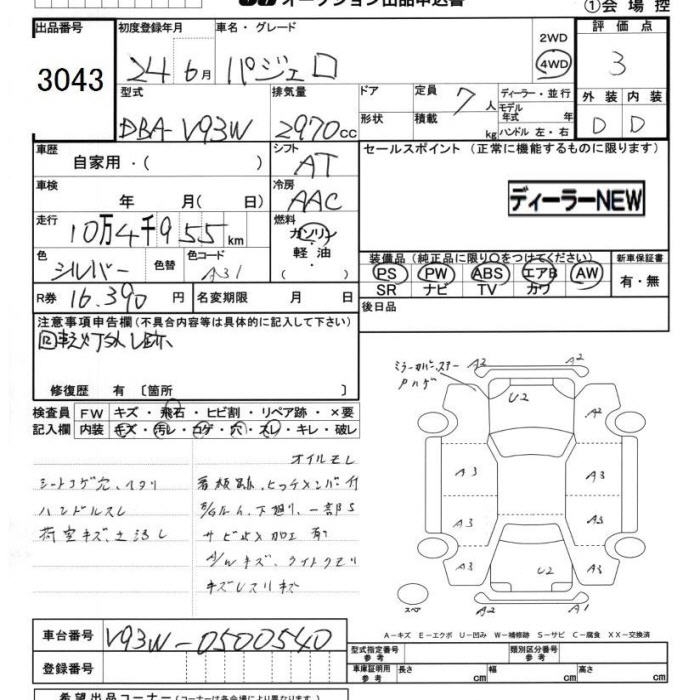 オークション出品申込書
①会場控
出品番号
3043
初度登録年月
24 6月
車名・グレード
パジェロ
2WD
4WD
評価点
3
型式
DBA-V93W
排気量
2970cc
ドア
形状
定員 7人
積載 kg
ディーラー・並行
モデル年式 年
ハンドル 左・右
外装 内装
D D
車歴
自家用・( )
シフト
AT
車検
年 月( 日)
冷房
AAC
セールスポイント (正常に機能するものに限ります)
ディーラーNEW
走行
10万4千955km
燃料
ガソリン
軽油
・
( )
色
シルバー
色替
色コード
A31
装備品(純正品に限り○をつけてください)
PS PW ABS エアB AW
SR ナビ TV カワ
新車保証書
有・無
R券 16,390円
名変期限 月 日
後日品
注意事項申告欄(不具合内容等は具体的に記入して下さい)
修復歴 有 〔箇所 〕
検査員
記入欄
FW キズ・飛石・ヒビ割・リペア跡・×要
内装 キズ・汚レ・コゲ・穴・スレ・キレ・破レ
オイルモレ
シートコゲ穴、ヘタリ
ハンドルスレ
荷室キズ、土汚レ
看板跡、ヒッチメンバ付
下廻り、一部S
サビ止メ加工有
A/Wキズ、ライトクモリ
キズレスリキズ
ミラーカバー
Pハゲ
A2 A2
U2
A2
A3 A3
A3 A3
A3 U2 A3
A2 A1
スペア
A-キズ E-エクボ U-凹み W-補修跡 S-サビ C-腐食 XX-交換済
車台番号
V93W-0500540
登録番号
型式指定番号
参考
類別区分番号
参考
車庫証明用
参考
長さ cm
幅 cm
高さ cm
希望出品コーナー(コーナーは各会場により異なります。)